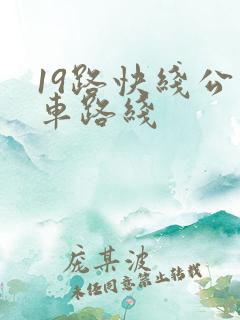 19路快綫公
車路綫
庞某波
未经同意禁止转载